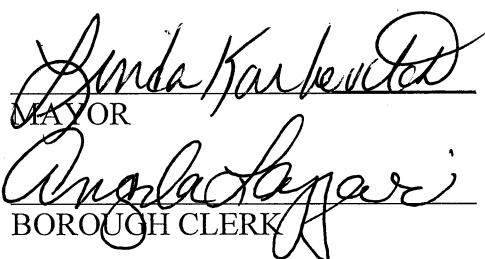 Linda Karkevitch
MAYOR
Angela Lazzari
BOROUGH CLERK